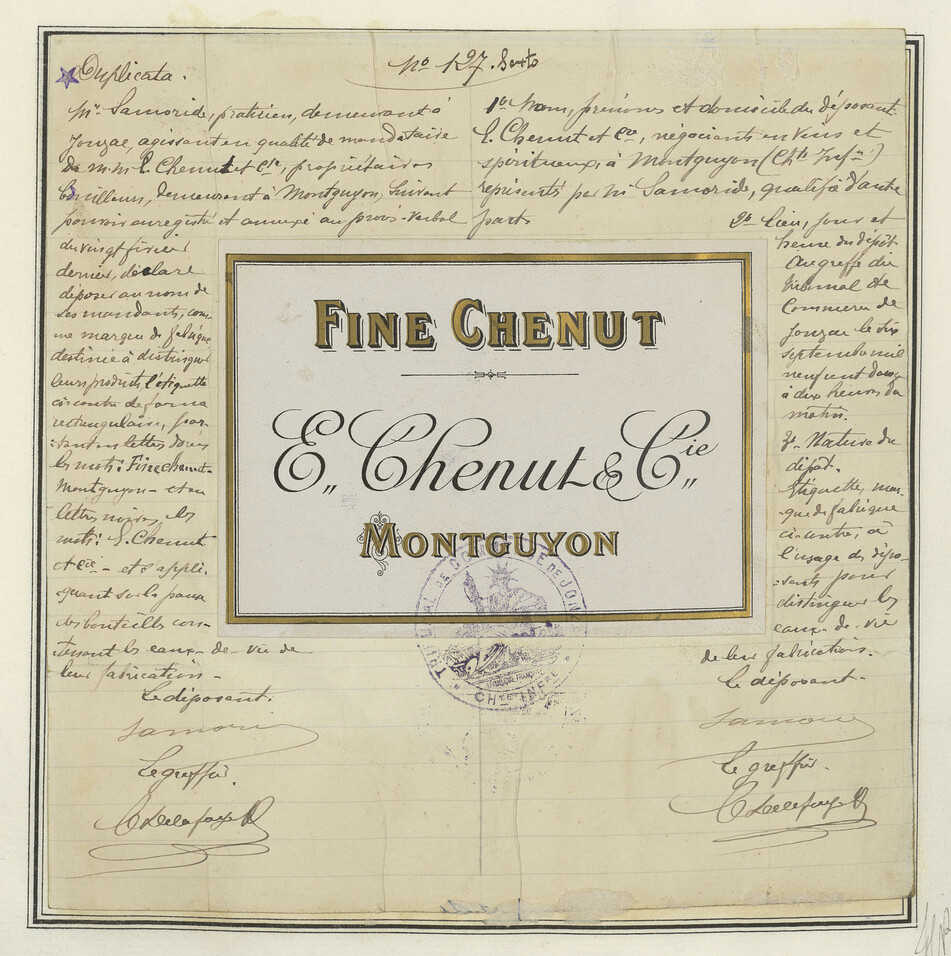 Duplicata.
No 127. Sexto
Mr Samoride, praticien, demeurant à
Jonzac, agissant en qualité de mandataire
de M.M. E. Chenut et Cie, propriétaires
bouilleurs, demeurant à Montguyon, suivant
pouvoir enregistré et annexé au procès-verbal
du vingt février
dernier, déclare
déposer au nom de
ses mandants, com
me marque de fabrique
destinée à distinguer
leurs produits l'étiquette
ci-contre de forme
rectangulaire, por-
:tant en lettres dorées
les mots: Fine Chenut-
Montguyon - et en
lettres noires, les
mots: E. Chenut
et Cie - et s'appli-
quant sur la panse
des bouteilles con-
:tenant les eaux-de-vie de
leur fabrication -
Le déposant.
Samoride
Le greffier.
1o Nom, prénoms et domicile du déposant
E. Chenut et Cie, négociants en vins et
spiritueux, à Montguyon (Chte Infre)
représentés par Mr Samoride, qualifié d'autre
part.
2o Lieu, jour et
heure du dépôt
Au greffe du
tribunal de
Commerce de
Jonzac le six
septembre mil
neuf cent douze
à dix heures du
matin.
3o Nature du
dépôt.
Etiquette, mar-
-que de fabrique
ci-contre, à
l'usage des dépo-
:sants pour
distinguer les
eaux-de-vie
de leur fabrication.
Le déposant-
Samoride
Le greffier.
FINE CHENUT
E,, Chenut & Cie,,
MONTGUYON
TRIBUNAL DE COMMERCE DE JONZAC
CHTE INFRE